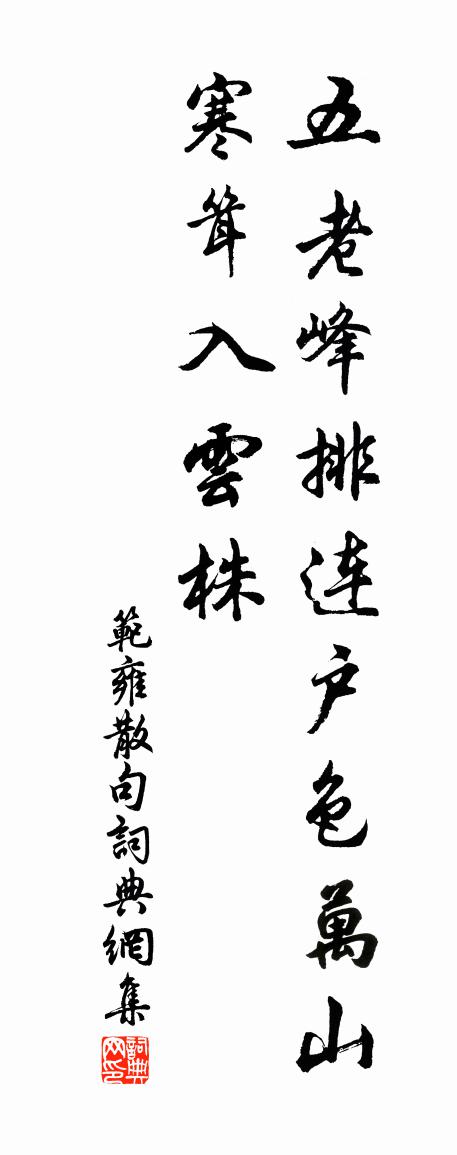 五老峰排連户色萬山
寒聳入雲株
範雍散句詞典網集
詞典网印